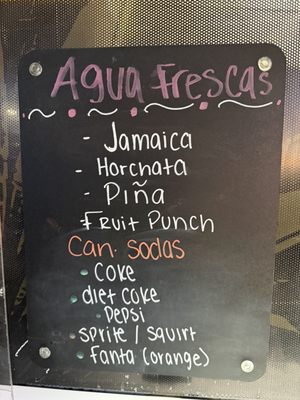 Agua Frescas
- Jamaica
- Horchata
- Piña
- Fruit Punch
Can. Sodas
• Coke
• diet coke
• Pepsi
• sprite / squirt
• Fanta (orange)